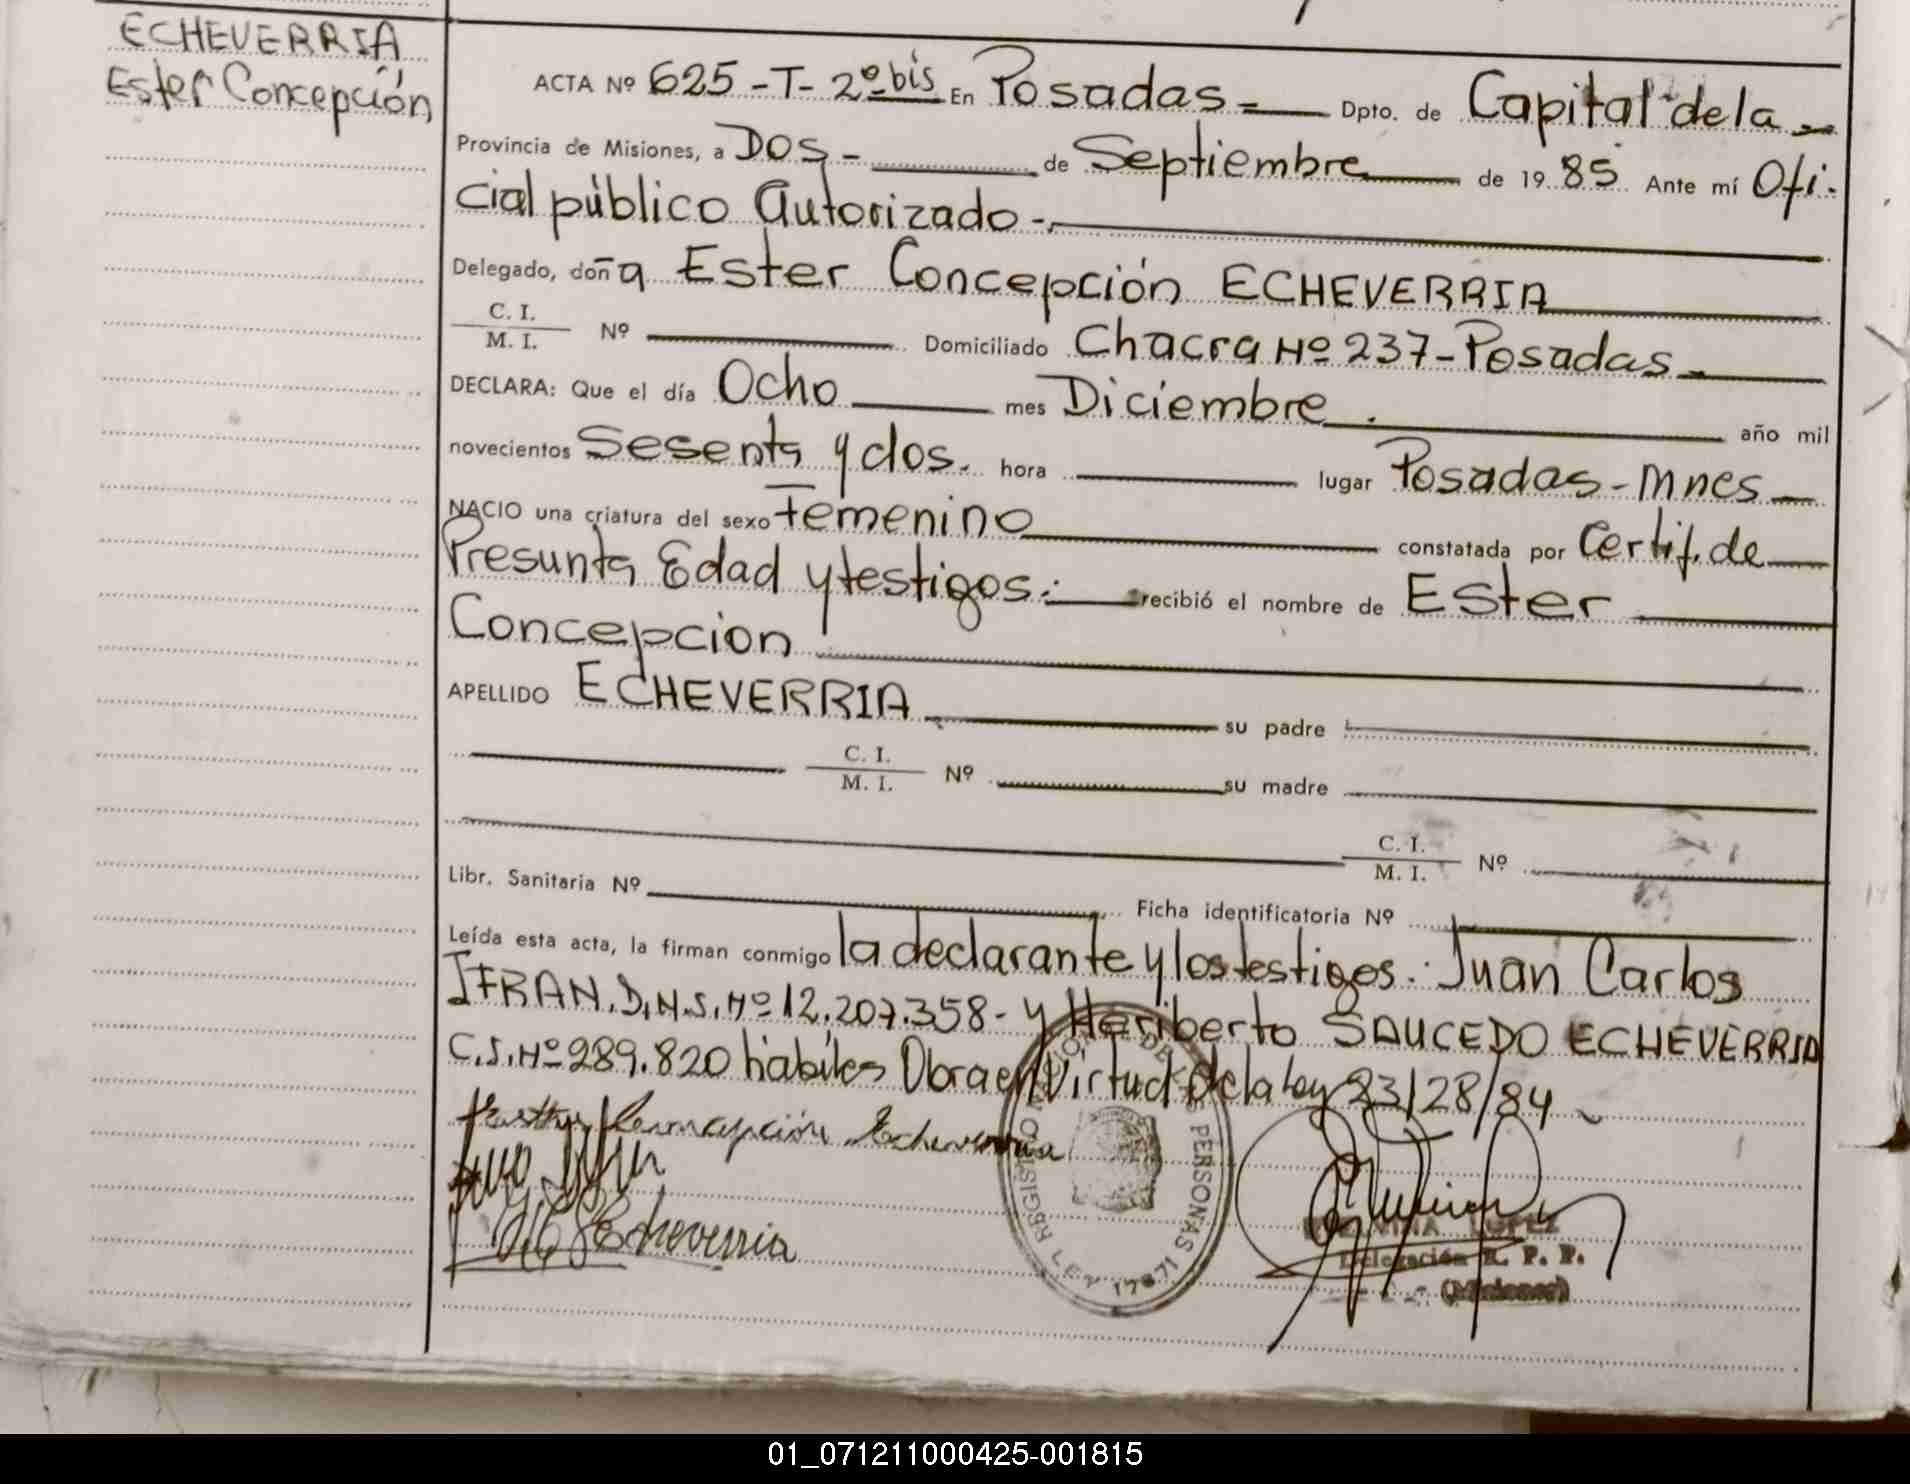 ECHEVERRIA
Ester Concepción
ACTA Nº 625-T-2º bis En Posadas - Dpto. de Capital de la -
Provincia de Misiones, a Dos - de Septiembre de 1985 Ante mí Ofi-
cial público Autorizado -
Delegado, doña Ester Concepción ECHEVERRIA
C. I.
M. I. Nº Domiciliado Chacra Nº 237 - Posadas -
DECLARA: Que el día Ocho mes Diciembre . año mil
novecientos Sesenta y dos. hora lugar Posadas - Mnes
NACIO una criatura del sexo Femenino constatada por Certif. de
Presunta Edad y testigos.- recibió el nombre de Ester
Concepcion
APELLIDO ECHEVERRIA su padre
C. I.
M. I. Nº su madre
C. I.
M. I. Nº
Libr. Sanitaria Nº Ficha identificatoria Nº
Leída esta acta, la firman conmigo la declarante y los testigos. Juan Carlos
IFRAN. D.N.I. Nº 12.207.358 - y Heriberto SAUCEDO ECHEVERRIA
C.I. Nº 289.820 hábiles Obra en Virtud de la Ley 23/28/84
Concepción Echeverria
Echeverria
PERSONAS
LEY 17671
LOPEZ
Delegación R. P. P.
(Misiones)
01_071211000425-001815